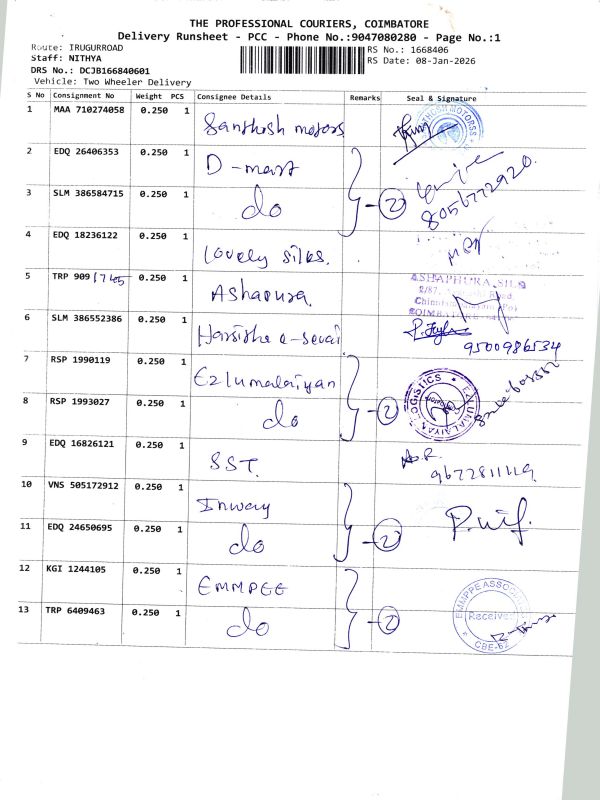 THE PROFESSIONAL COURIERS, COIMBATORE
Delivery Runsheet - PCC - Phone No.:9047080280 - Page No.:1
Route: IRUGURROAD
RS No.: 1668406
Staff: NITHYA
RS Date: 08-Jan-2026
DRS No.: DCJB166840601
Vehicle: Two Wheeler Delivery
S No Consignment No Weight PCS Consignee Details Remarks Seal & Signature
1 MAA 710274058 0.250 1 Santhosh motors
2 EDQ 26406353 0.250 1 D-mart
3 SLM 386584715 0.250 1 do 2 8056772920.
4 EDQ 18236122 0.250 1 Lovely silks.
5 TRP 909 0.250 1 ASHAPHURA
6 SLM 386552386 0.250 1 9500986534
7 RSP 1990119 0.250 1 Ezlumalaiyan
8 RSP 1993027 0.250 1 do 2 EZLUMALAIYAN LOGISTICS
9 EDQ 16826121 0.250 1 SST.
10 VNS 505172912 0.250 1 Inway
11 EDQ 24650695 0.250 1 do 2
12 KGI 1244105 0.250 1 EMMPEE
13 TRP 6409463 0.250 1 do 2 Received CBE-62